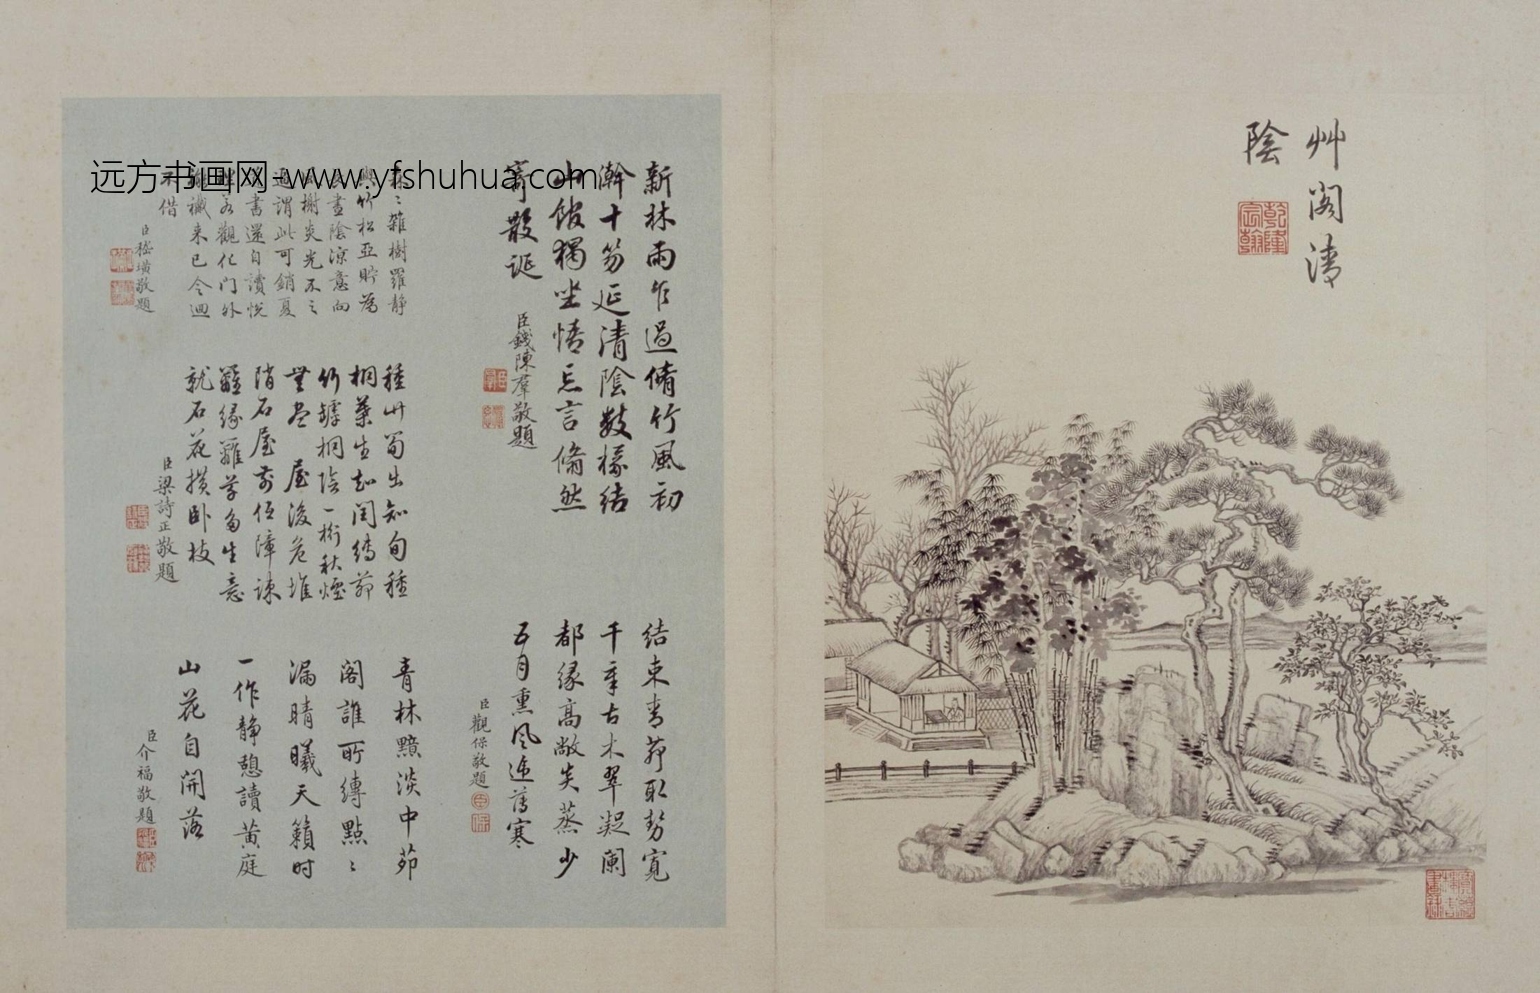 艸閣清
陰
乾隆宸翰
新林雨乍過脩竹風初
瀚十笏延清陰數椽結
山館獨坐悟忘言脩然
寄散誕
臣錢陳羣敬題
結束青茆取勢寬
千章古木翠凝闌
都緣高敞炎蒸少
五月熏風逗薄寒
臣觀保敬題
雜樹羅靜
竹松亞貯為
畫陰涼意向
榭炎光不〻
謂此可銷夏
書還自讀悅
觀化門外
襶來已令迴
不借
臣嵇璜敬題
種竹筍出知旬種
桐葉生知閏縛茆
竹罅桐陰一桁秋煙
無盡屋後危堆
階石屋前低障疎
籬緣籬芋多生意
就石花攢卧枝
臣梁詩正敬題
青林黯淡中茆
閣誰所縛點〻
漏晴曦天籟时
一作靜憩讀黃庭
山花自開落
臣介福敬題
远方书画网-www.yfshuhua.com